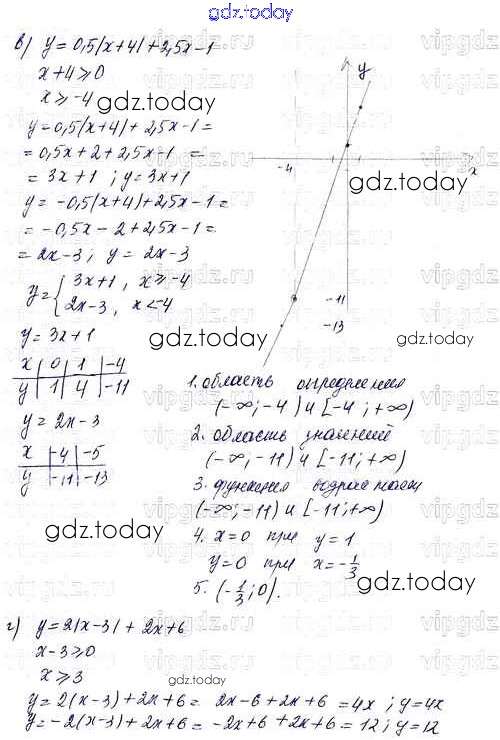 gdz.today
в) y = 0,5|x+4| + 2,5x-1
x+4 ⩾ 0
x ⩾ -4
y = 0,5(x+4) + 2,5x-1 =
= 0,5x + 2 + 2,5x - 1 =
= 3x + 1 ; y = 3x+1
y = -0,5(x+4) + 2,5x-1 =
= -0,5x - 2 + 2,5x - 1 =
= 2x - 3 ; y = 2x - 3
y = { 3x+1 , x ⩾ -4
2x-3 , x < -4
y = 3x + 1
x | 0 | 1 | -4
y | 1 | 4 | -11
y = 2x - 3
x | -4 | -5
y | -11 | -13
y
x
-4
1
-11
-13
1. область определения
(-∞; -4) и [-4; +∞)
2. область значений
(-∞; -11) и [-11; +∞)
3. функция возрастает
(-∞; -11) и [-11; +∞)
4. x=0 при y = 1
y=0 при x = -1/3
5. (-1/3; 0).
г) y = 2|x-3| + 2x+6
x-3 ⩾ 0
x ⩾ 3
y = 2(x-3) + 2x + 6 = 2x-6 + 2x + 6 = 4x ; y = 4x
y = -2(x-3) + 2x + 6 = -2x+6 + 2x + 6 = 12 ; y = 12
gdz.today
gdz.today
gdz.today
gdz.today
gdz.today
gdz.today
vipgdz.ru